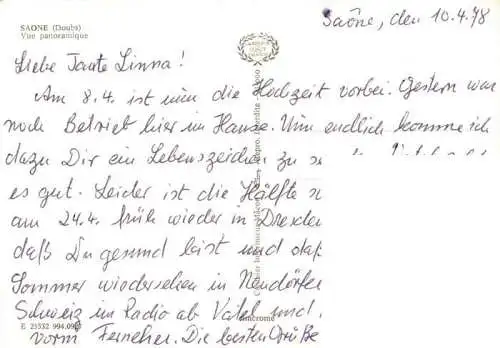 SAONE (Doubs)
Vue panoramique
Saône, den 10.4.78
Liebe Tante Linna!
Am 8.4. ist nun die Hochzeit vorbei. Gestern war
noch Betrieb hier im Hause. Nun endlich komme ich
dazu Dir ein Lebenszeichen zu
es gut. Leider ist die Hälfte
am 24.4. früh wieder in Dresden
daß Du gesund bist und daß
Sommer wiedersehen in
Schweiz im Radio ab Vatel und
vorm Fernseher. Die besten Grüße
E 25332 994.09